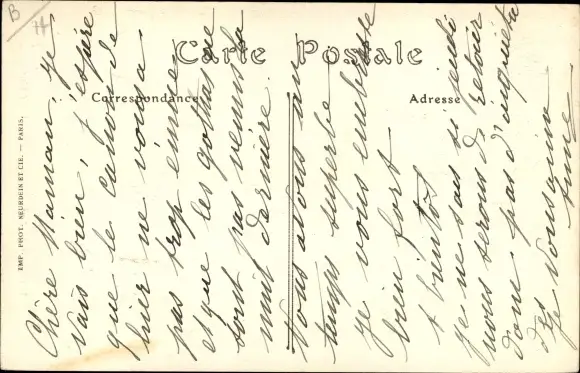 Carte Postale
Correspondance
Adresse
IMP. PHOT. NEURDEIN ET CIE. — PARIS.
B
H
Chère Maman, je
vais bien, j'espère
que le canon de
hier ne vous a
pas trop émue
et que les gothas ne
sont pas venus la
nuit dernière.
Nous avons un
temps superbe
Je vous embrasse
bien fort
à bientôt
Je ne sais si jeudi
nous serons de retour
donc pas d'inquiétu
des
Je vous aime